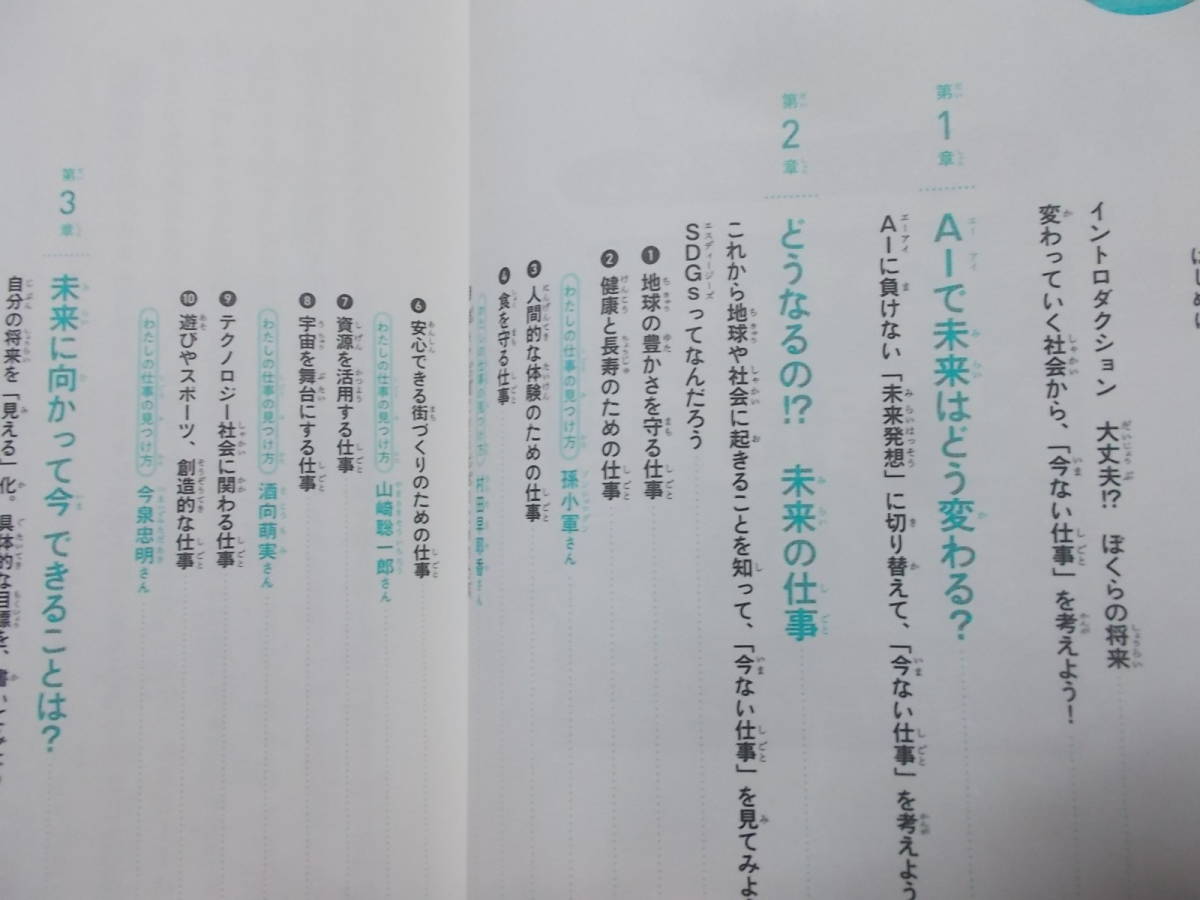 はじめに
イントロダクション 大丈夫!? ぼくらの将来
変わっていく社会から、「今ない仕事」を考えよう!
第1章 AIで未来はどう変わる?
AIに負けない「未来発想」に切り替えて、「今ない仕事」を考えよう
第2章 どうなるの!? 未来の仕事
これから地球や社会に起きることを知って、「今ない仕事」を見てみよ
SDGsってなんだろう
❶ 地球の豊かさを守る仕事
❷ 健康と長寿のための仕事
わたしの仕事の見つけ方 孫小軍さん
❸ 人間的な体験のための仕事
❹ 食を守る仕事
わたしの仕事の見つけ方 村田早耶香さん
❻ 安心できる街づくりのための仕事
わたしの仕事の見つけ方 山崎聡一郎さん
❼ 資源を活用する仕事
❽ 宇宙を舞台にする仕事
わたしの仕事の見つけ方 酒向萌実さん
❾ テクノロジー社会に関わる仕事
❿ 遊びやスポーツ、創造的な仕事
わたしの仕事の見つけ方 今泉忠明さん
第3章 未来に向かって今 できることは?
自分の将来を「見える」化。具体的な目標を、書い